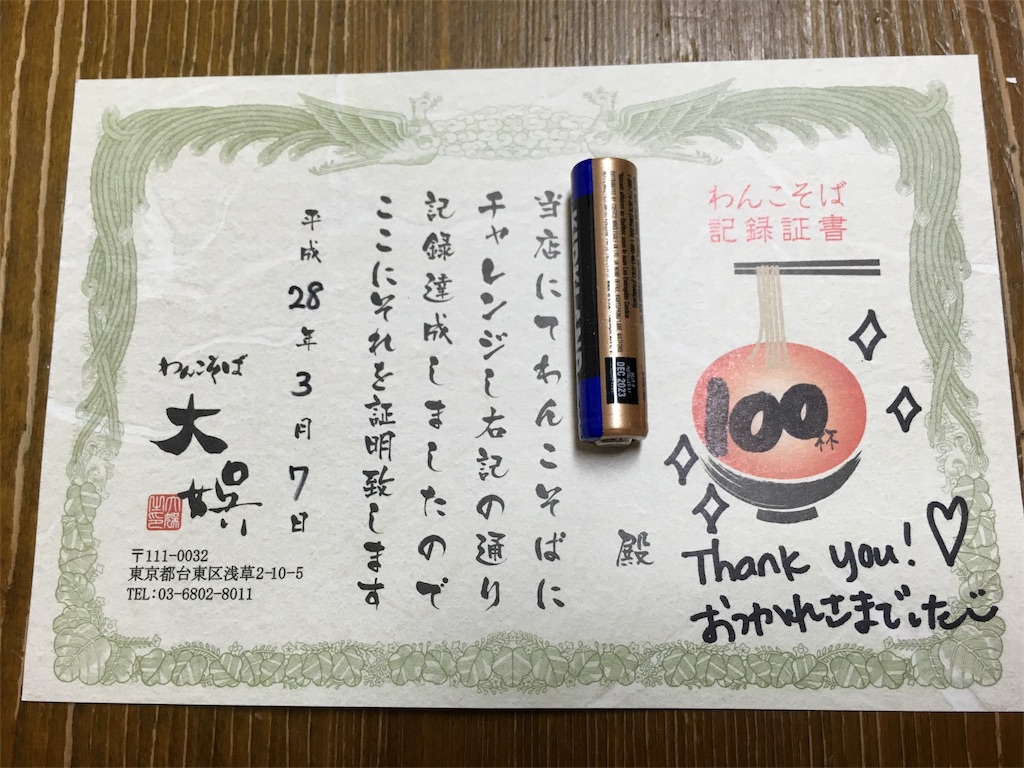 わんこそば
記録証書
100杯
Thank you!
おつかれさまでした
殿
当店にてわんこそばに
チャレンジし右記の通り
記録達成しましたので
ここにそれを証明致します
平成28年3月7日
わんこそば
大娯
〒111-0032
東京都台東区浅草2-10-5
TEL:03-6802-8011
DEC 2023